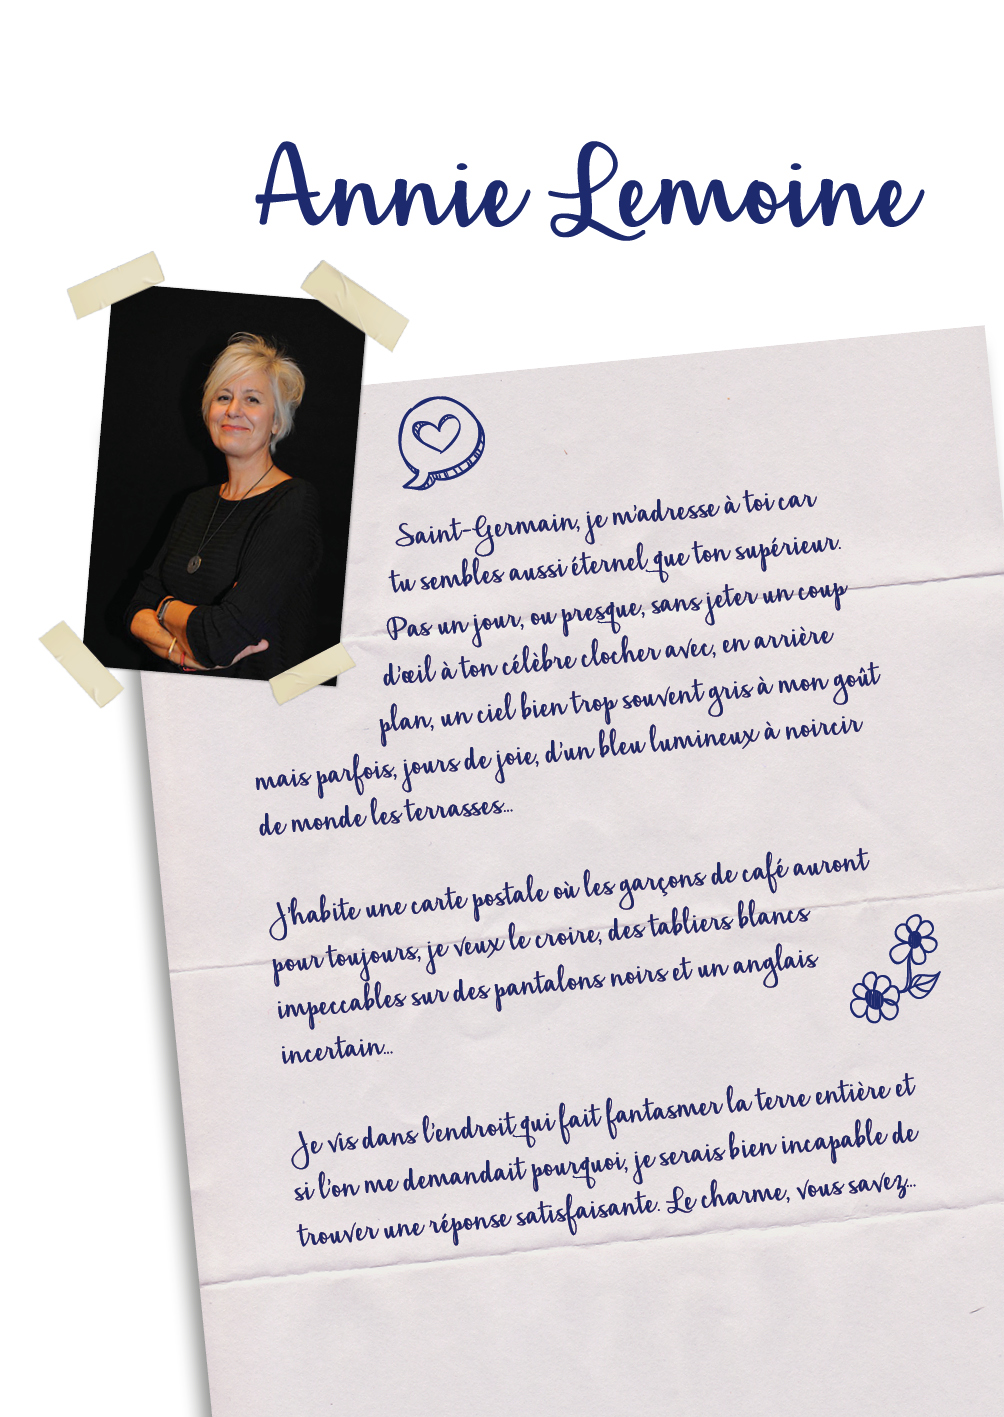 Annie Lemoine
Saint-Germain, je m'adresse à toi car
tu sembles aussi éternel que ton supérieur.
Pas un jour, ou presque, sans jeter un coup
d'œil à ton célèbre clocher avec, en arrière
plan, un ciel bien trop souvent gris à mon goût
mais parfois, jours de joie, d'un bleu lumineux à noircir
de monde les terrasses...
J'habite une carte postale où les garçons de café auront
pour toujours, je veux le croire, des tabliers blancs
impeccables sur des pantalons noirs et un anglais
incertain...
Je vis dans l'endroit qui fait fantasmer la terre entière et
si l'on me demandait pourquoi, je serais bien incapable de
trouver une réponse satisfaisante. Le charme, vous savez...